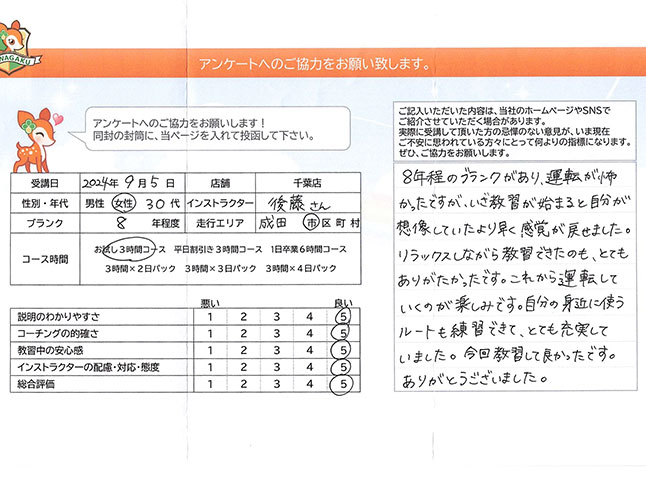 NAGAKU
アンケートへのご協力をお願い致します。
アンケートへのご協力をお願いします！
同封の封筒に、当ページを入れて投函して下さい。
受講日 2024年 9月 5日 店舗 千葉店
性別・年代 男性 女性 30代 インストラクター 後藤さん
ブランク 8 年程度 走行エリア 成田 市区町村
コース時間 お試し3時間コース 平日割引き3時間コース 1日卒業6時間コース
3時間×2日パック 3時間×3日パック 3時間×4日パック
悪い 良い
説明のわかりやすさ 1 2 3 4 5
コーチングの的確さ 1 2 3 4 5
教習中の安心感 1 2 3 4 5
インストラクターの配慮・対応・態度 1 2 3 4 5
総合評価 1 2 3 4 5
ご記入いただいた内容は、当社のホームページやSNSで
ご紹介させていただく場合があります。
実際に受講して頂いた方の忌憚のない意見が、いま現在
ご不安に思われている方々にとって何よりの指標になります。
ぜひ、ご協力をお願いします。
8年程のブランクがあり、運転が怖
かったですが、いざ教習が始まると自分が
想像していたより早く感覚が戻せました。
リラックスしながら教習できたのも、とても
ありがたかったです。これから運転して
いくのが楽しみです。自分の身近に使う
ルートも練習できて、とても充実して
いました。今回教習して良かったです。
ありがとうございました。